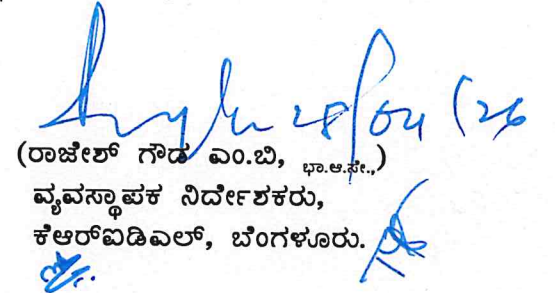 28/04/26
(ರಾಜೇಶ್ ಗೌಡ ಎಂ.ಬಿ, ಭಾ.ಆ.ಸೇ.,)
ವ್ಯವಸ್ಥಾಪಕ ನಿರ್ದೇಶಕರು,
ಕೆಆರ್‌ಐಡಿಎಲ್, ಬೆಂಗಳೂರು.